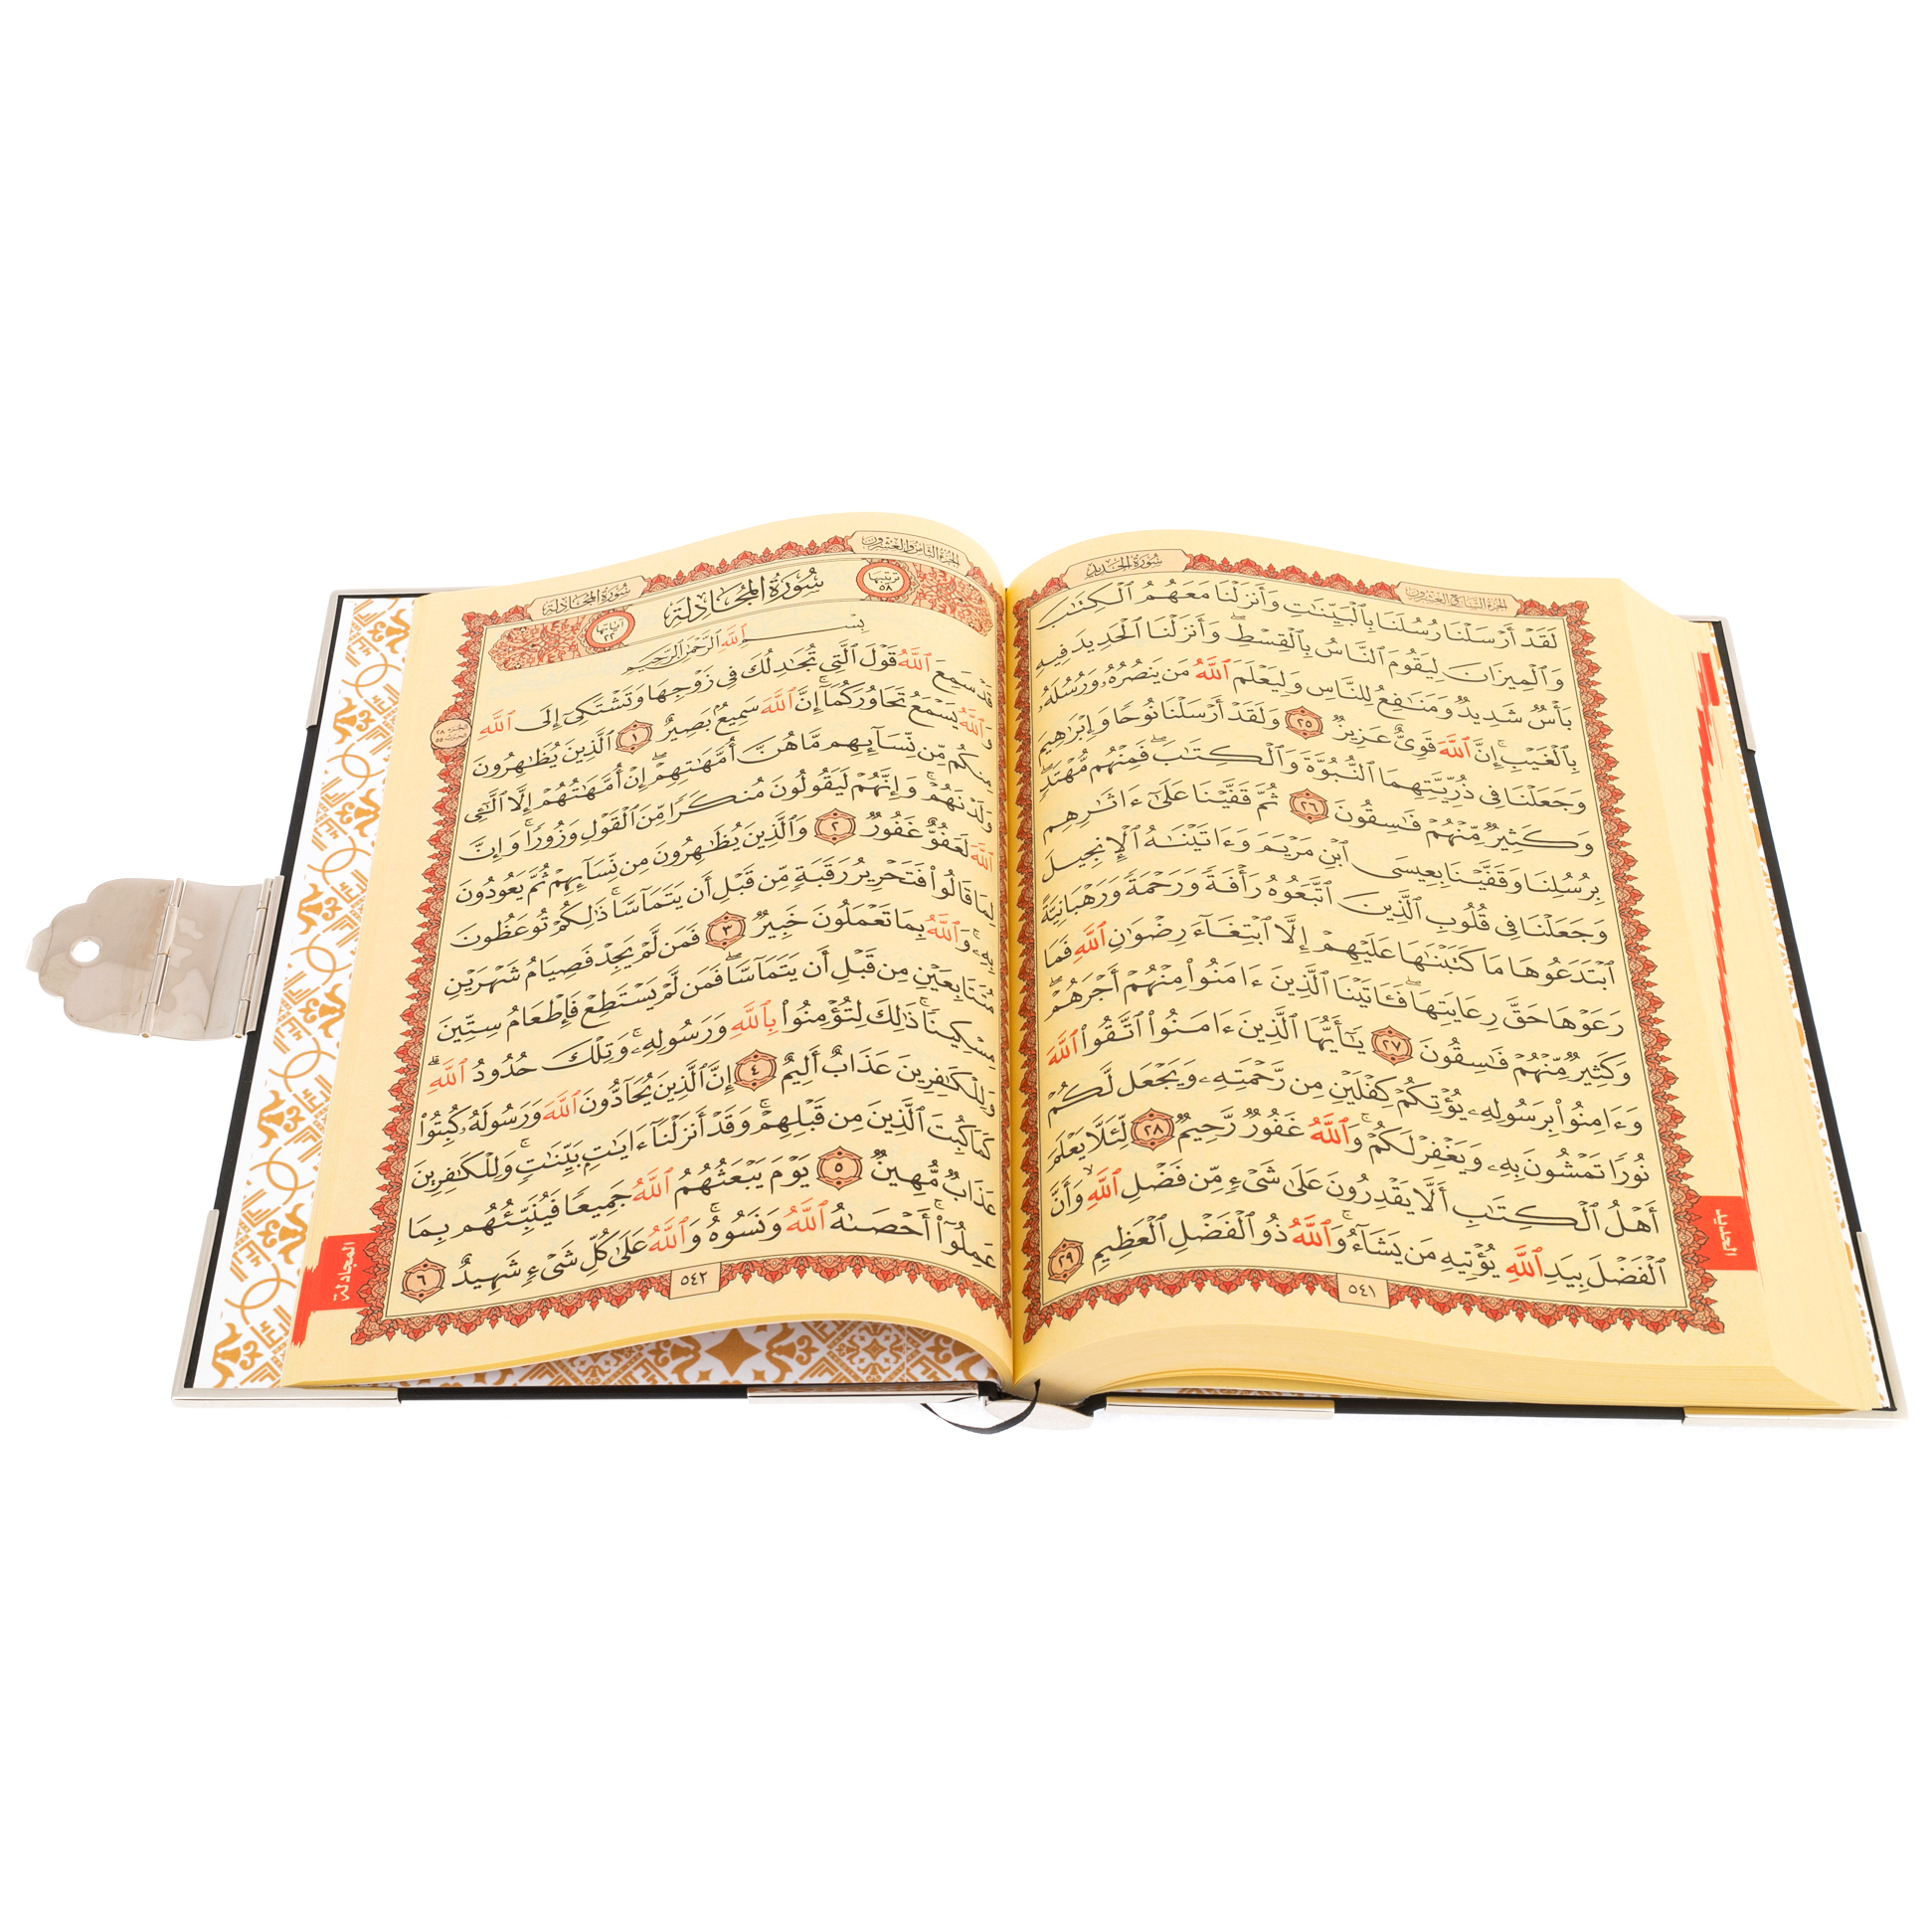 سورة الحديد
الجزء السابع والعشرون
لَقَدْ أَرْسَلْنَا رُسُلَنَا بِٱلْبَيِّنَٰتِ وَأَنزَلْنَا مَعَهُمُ ٱلْكِتَٰبَ
وَٱلْمِيزَانَ لِيَقُومَ ٱلنَّاسُ بِٱلْقِسْطِ ۖ وَأَنزَلْنَا ٱلْحَدِيدَ فِيهِ
بَأْسٌ شَدِيدٌ وَمَنَٰفِعُ لِلنَّاسِ وَلِيَعْلَمَ ٱللَّهُ مَن يَنصُرُهُۥ وَرُسُلَهُۥ
بِٱلْغَيْبِ ۚ إِنَّ ٱللَّهَ قَوِىٌّ عَزِيزٌ ٢٥ وَلَقَدْ أَرْسَلْنَا نُوحًا وَإِبْرَٰهِيمَ
وَجَعَلْنَا فِى ذُرِّيَّتِهِمَا ٱلنُّبُوَّةَ وَٱلْكِتَٰبَ ۖ فَمِنْهُم مُّهْتَدٍ ۖ
وَكَثِيرٌ مِّنْهُمْ فَٰسِقُونَ ٢٦ ثُمَّ قَفَّيْنَا عَلَىٰٓ ءَاثَٰرِهِم
بِرُسُلِنَا وَقَفَّيْنَا بِعِيسَى ٱبْنِ مَرْيَمَ وَءَاتَيْنَٰهُ ٱلْإِنجِيلَ
وَجَعَلْنَا فِى قُلُوبِ ٱلَّذِينَ ٱتَّبَعُوهُ رَأْفَةً وَرَحْمَةً وَرَهْبَانِيَّةً
ٱبْتَدَعُوهَا مَا كَتَبْنَٰهَا عَلَيْهِمْ إِلَّا ٱبْتِغَآءَ رِضْوَٰنِ ٱللَّهِ فَمَا
رَعَوْهَا حَقَّ رِعَايَتِهَا ۖ فَـَٔاتَيْنَا ٱلَّذِينَ ءَامَنُوا۟ مِنْهُمْ أَجْرَهُمْ ۖ
وَكَثِيرٌ مِّنْهُمْ فَٰسِقُونَ ٢٧ يَٰٓأَيُّهَا ٱلَّذِينَ ءَامَنُوا۟ ٱتَّقُوا۟ ٱللَّهَ
وَءَامِنُوا۟ بِرَسُولِهِۦ يُؤْتِكُمْ كِفْلَيْنِ مِن رَّحْمَتِهِۦ وَيَجْعَل لَّكُمْ
نُورًا تَمْشُونَ بِهِۦ وَيَغْفِرْ لَكُمْ ۚ وَٱللَّهُ غَفُورٌ رَّحِيمٌ ٢٨ لِّئَلَّا يَعْلَمَ
أَهْلُ ٱلْكِتَٰبِ أَلَّا يَقْدِرُونَ عَلَىٰ شَىْءٍ مِّن فَضْلِ ٱللَّهِ ۙ وَأَنَّ
ٱلْفَضْلَ بِيَدِ ٱللَّهِ يُؤْتِيهِ مَن يَشَآءُ ۚ وَٱللَّهُ ذُو ٱلْفَضْلِ ٱلْعَظِيمِ ٢٩
٥٤١
الحديد
الجزء الثامن والعشرون
سورة المجادلة
ترتيبها ٥٨
سورة المجادلة
آياتها ٢٢
بِسْمِ ٱللَّهِ ٱلرَّحْمَٰنِ ٱلرَّحِيمِ
قَدْ سَمِعَ ٱللَّهُ قَوْلَ ٱلَّتِى تُجَٰدِلُكَ فِى زَوْجِهَا وَتَشْتَكِىٓ إِلَى ٱللَّهِ
وَٱللَّهُ يَسْمَعُ تَحَاوُرَكُمَآ ۚ إِنَّ ٱللَّهَ سَمِيعٌۢ بَصِيرٌ ١ ٱلَّذِينَ يُظَٰهِرُونَ
مِنكُم مِّن نِّسَآئِهِم مَّا هُنَّ أُمَّهَٰتِهِمْ ۖ إِنْ أُمَّهَٰتُهُمْ إِلَّا ٱلَّٰٓـِٔى
وَلَدْنَهُمْ ۚ وَإِنَّهُمْ لَيَقُولُونَ مُنكَرًا مِّنَ ٱلْقَوْلِ وَزُورًا ۚ وَإِنَّ
ٱللَّهَ لَعَفُوٌّ غَفُورٌ ٢ وَٱلَّذِينَ يُظَٰهِرُونَ مِن نِّسَآئِهِمْ ثُمَّ يَعُودُونَ
لِمَا قَالُوا۟ فَتَحْرِيرُ رَقَبَةٍ مِّن قَبْلِ أَن يَتَمَآسَّا ۚ ذَٰلِكُمْ تُوعَظُونَ
بِهِۦ ۚ وَٱللَّهُ بِمَا تَعْمَلُونَ خَبِيرٌ ٣ فَمَن لَّمْ يَجِدْ فَصِيَامُ شَهْرَيْنِ
مُتَتَابِعَيْنِ مِن قَبْلِ أَن يَتَمَآسَّا ۖ فَمَن لَّمْ يَسْتَطِعْ فَإِطْعَامُ سِتِّينَ
مِسْكِينًا ۚ ذَٰلِكَ لِتُؤْمِنُوا۟ بِٱللَّهِ وَرَسُولِهِۦ ۚ وَتِلْكَ حُدُودُ ٱللَّهِ ۗ
وَلِلْكَٰفِرِينَ عَذَابٌ أَلِيمٌ ٤ إِنَّ ٱلَّذِينَ يُحَآدُّونَ ٱللَّهَ وَرَسُولَهُۥ كُبِتُوا۟
كَمَا كُبِتَ ٱلَّذِينَ مِن قَبْلِهِمْ ۚ وَقَدْ أَنزَلْنَآ ءَايَٰتٍۭ بَيِّنَٰتٍ ۚ وَلِلْكَٰفِرِينَ
عَذَابٌ مُّهِينٌ ٥ يَوْمَ يَبْعَثُهُمُ ٱللَّهُ جَمِيعًا فَيُنَبِّئُهُم بِمَا
عَمِلُوٓا۟ ۚ أَحْصَىٰهُ ٱللَّهُ وَنَسُوهُ ۚ وَٱللَّهُ عَلَىٰ كُلِّ شَىْءٍ شَهِيدٌ ٦
٥٤٢
المجادلة